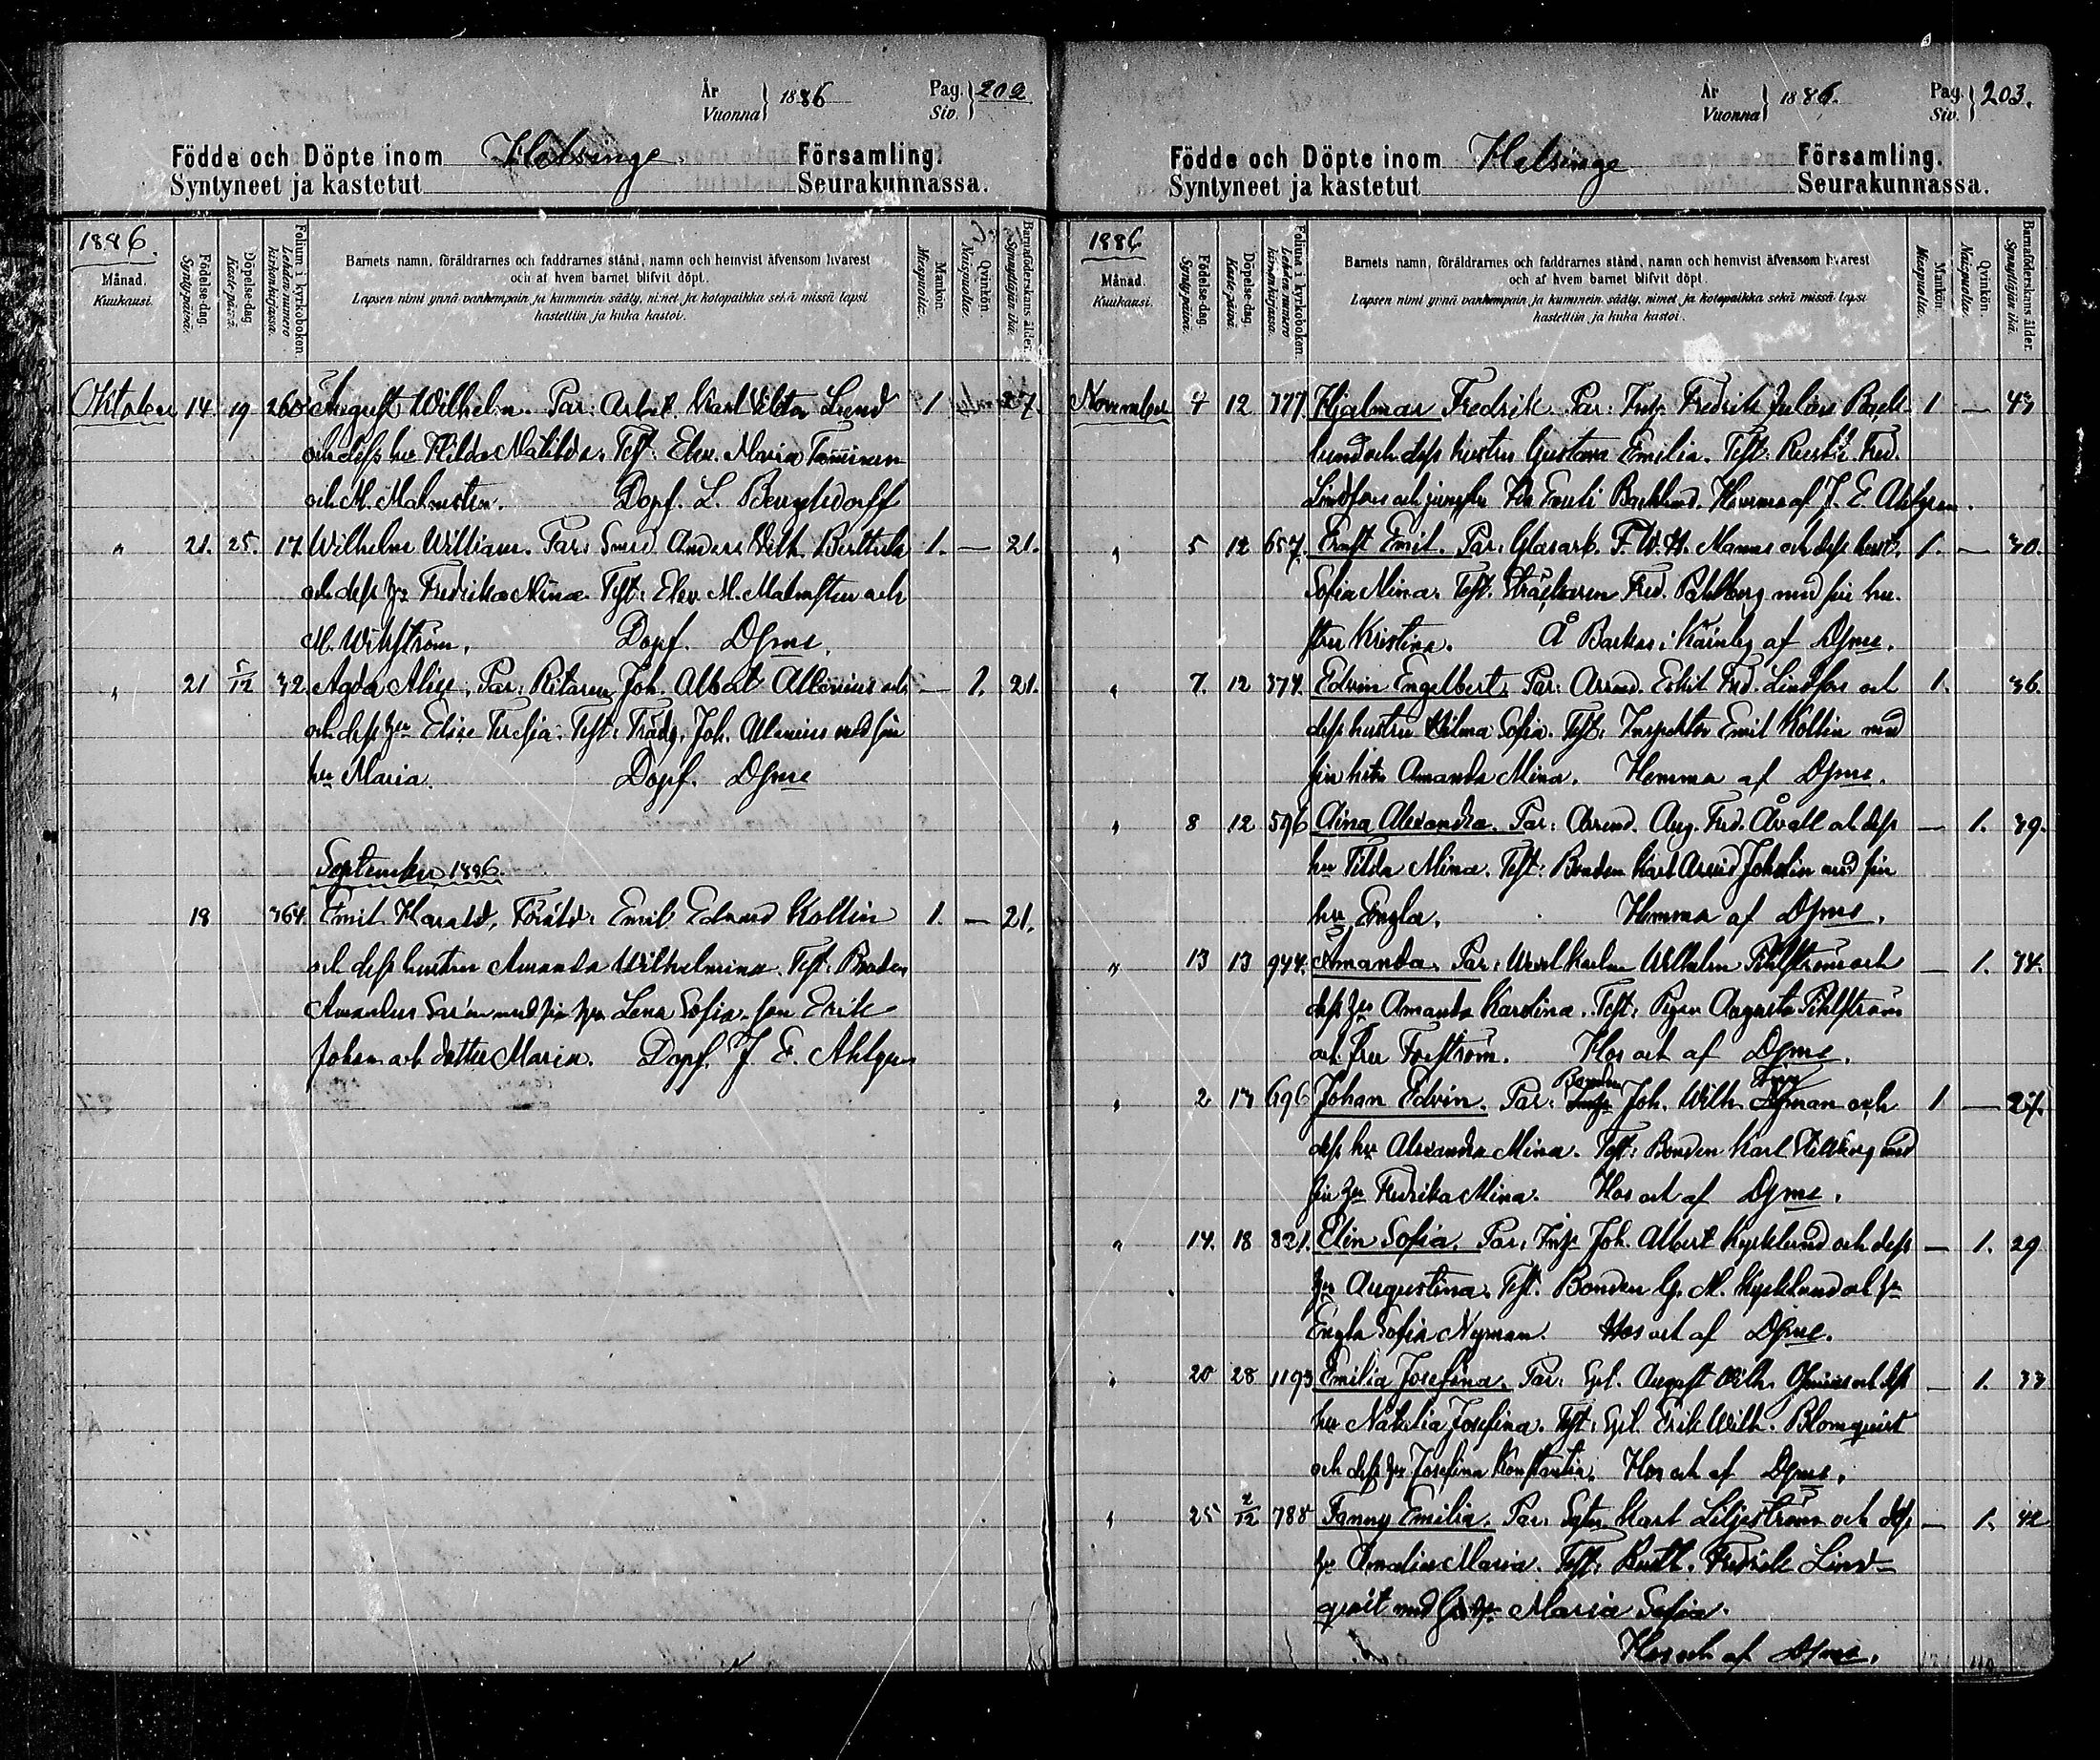 År
Vuonna
1886
Pag.
Siv.
202
Födde och Döpte inom Helsinge Församling.
Syntyneet ja kastetut Seurakunnassa.
1886.
Månad.
Kuukausi.
Födelse-dag.
Synty-päivä.
Döpelse-dag.
Kaste-päivä.
Folium i kyrkoboken.
Lehden numero
kirkonkirjassa.
Barnets namn, föräldrarnes och faddrarnes stånd, namn och hemvist äfvensom hvarest
och af hvem barnet blifvit döpt.
Lapsen nimi ynnä vanhempain ja kummein sääty, nimet ja kotopaikka sekä missä lapsi
kastettiin ja kuka kastoi.
Mankön.
Miespuolia.
Qvinkön.
Naispuolia.
Barnaföderskans ålder.
Synnyttäjän ikä.
Oktober 14. 19. 260 August Wilhelm. Par: Arbet. Karl Viktor Lund 1 27.
och dess hu Hilda Matilda. Test: Elev. Maria Tamminen
och M. Malmsten. Dopf. L. Bengelsdorff
" 21. 25. 17. Wilhelm William. Par: Smed Anders Vilh. Berthula 1. — 21.
och dess hu Fredrika Mina. Test: Elev. M. Malmsten och
M. Wikström. Dopf. Dsme.
" 21 5/12 32. Agda Alice. Par: Ritaren Joh. Albert Allenius och — 1. 21.
och dess hu Elise Teresia. Test: Trädg. Joh. Allenius med sin
hu Maria. Dopf. Dsme
September 1886.
18 364. Emil Harald. Föräld: Emil Edvard Kollin 1. — 21.
och dess hustru Amanda Wilhelmina. Test: Bonden
Amandus med sin hu Lena Sofia, son Erik
Johan och dotter Maria. Dopf. J. E. Ahlgren
År
Vuonna
1886.
Pag.
Siv.
203.
Födde och Döpte inom Helsinge Församling.
Syntyneet ja kastetut Seurakunnassa.
1886
Månad.
Kuukausi.
Födelse-dag.
Synty-päivä.
Döpelse-dag.
Kaste-päivä.
Folium i kyrkoboken.
Lehden numero
kirkonkirjassa.
Barnets namn, föräldrarnes och faddrarnes stånd, namn och hemvist äfvensom hvarest
och af hvem barnet blifvit döpt.
Lapsen nimi ynnä vanhempain ja kummein sääty, nimet ja kotopaikka sekä missä lapsi
kastettiin ja kuka kastoi.
Mankön.
Miespuolia.
Qvinkön.
Naispuolia.
Barnaföderskans ålder.
Synnyttäjän ikä.
November 4 12 377. Hjalmar Fredrik. Par: Inh. Fredrik Julius Back- 1 — 43
lund och dess hustru Gustava Emilia. Test: Rusth. Fred.
Lindfors och jungfru Ida Emili Backlund. Hemma af J. E. Ahlgren.
" 5 12 657. Ernst Emil. Par: Glasarb. F. W. H. Manns och dess hust. 1. — 30.
Sofia Mina. Test: Sträckaren Fred. Pahlberg med sin hu-
stru Kristina. Å Backas i Käinby af Dsme.
" 7. 12 374. Edvin Engelbert. Par: Arrend. Eskil Fred. Lindfors och 1. 36.
dess hustru Vilma Sofia. Test: Inspektor Emil Kollin med
sin hstr Amanda Mina. Hemma af Dsme.
" 8 12 596 Aina Alexandra. Par: Arrend. Aug. Fred. Åvall och dess — 1. 39.
hu Tilda Mina. Test: Bonden Karl Arvid med sin
hu Engla. Hemma af Dsme.
" 13 13 944. Amanda. Par: Wilhelm Pihlström och — 1. 34.
dess hu Amanda Karolina. Test: Pigan Augusta Pihlström
och fru Forsström. Hos och af Dsme.
" 2 13 696 Johan Edvin. Par: Bonden Joh. Wilh. och 1 — 27.
dess hu Alexandra Mina. Test: Bonden Karl med
sin hu Fredrika Mina. Hos och af Dsme.
" 14. 18 821. Elin Sofia. Par: Inh. Joh. Albert Kycklund och dess — 1. 29
hu Augustina. Test: Bonden G. M. Kycklund och hu
Engla Sofia Nyman. Hos och af Dsme.
" 20 28 1193 Emilia Josefina. Par: August Vilh. och dess — 1. 33
hu Natalia Josefina. Test: Erik Wilh. Blomqvist
och dess hu Josefina Konstantia. Hos och af Dsme.
" 25 2/12 788 Fanny Emilia. Par: Karl Liljeström och dess — 1. 42
hu Amalia Maria. Test: Rusth. Fredrik Lind-
qvist med Maria Sofia.
Hos och af Dsme.